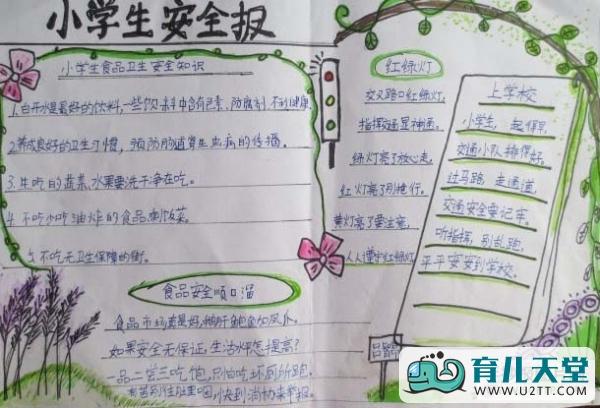 小学生安全报
小学生食品卫生安全知识
1.白开水是最好的饮料,一些饮料中含有色素、防腐剂,不利健康
2.养成良好的卫生习惯,预防肠道寄生虫病的传播。
3.生吃的蔬菜,水果要洗干净在吃。
4.不吃油炸的食品
5.不吃无卫生保障的街。
食品安全顺口溜
食品市场要是好,
如果安全无保证,生活水平怎提高?
一品二尝三吃饱,只怕吃坏厕所跑
有苦别往肚里咽,快到消协来举报
红绿灯
交叉路口红绿灯,
指挥交通显神通。
绿灯亮了放心走,
红灯亮了别抢行。
黄灯亮了要注意,
人人遵守红绿灯
上学校
小学生,起得早,
交通小队排得好。
过马路,走通道,
交通安全要记牢。
听指挥,别乱跑,
平平安安到学校。
育儿天堂
WWW.U2TT.COM